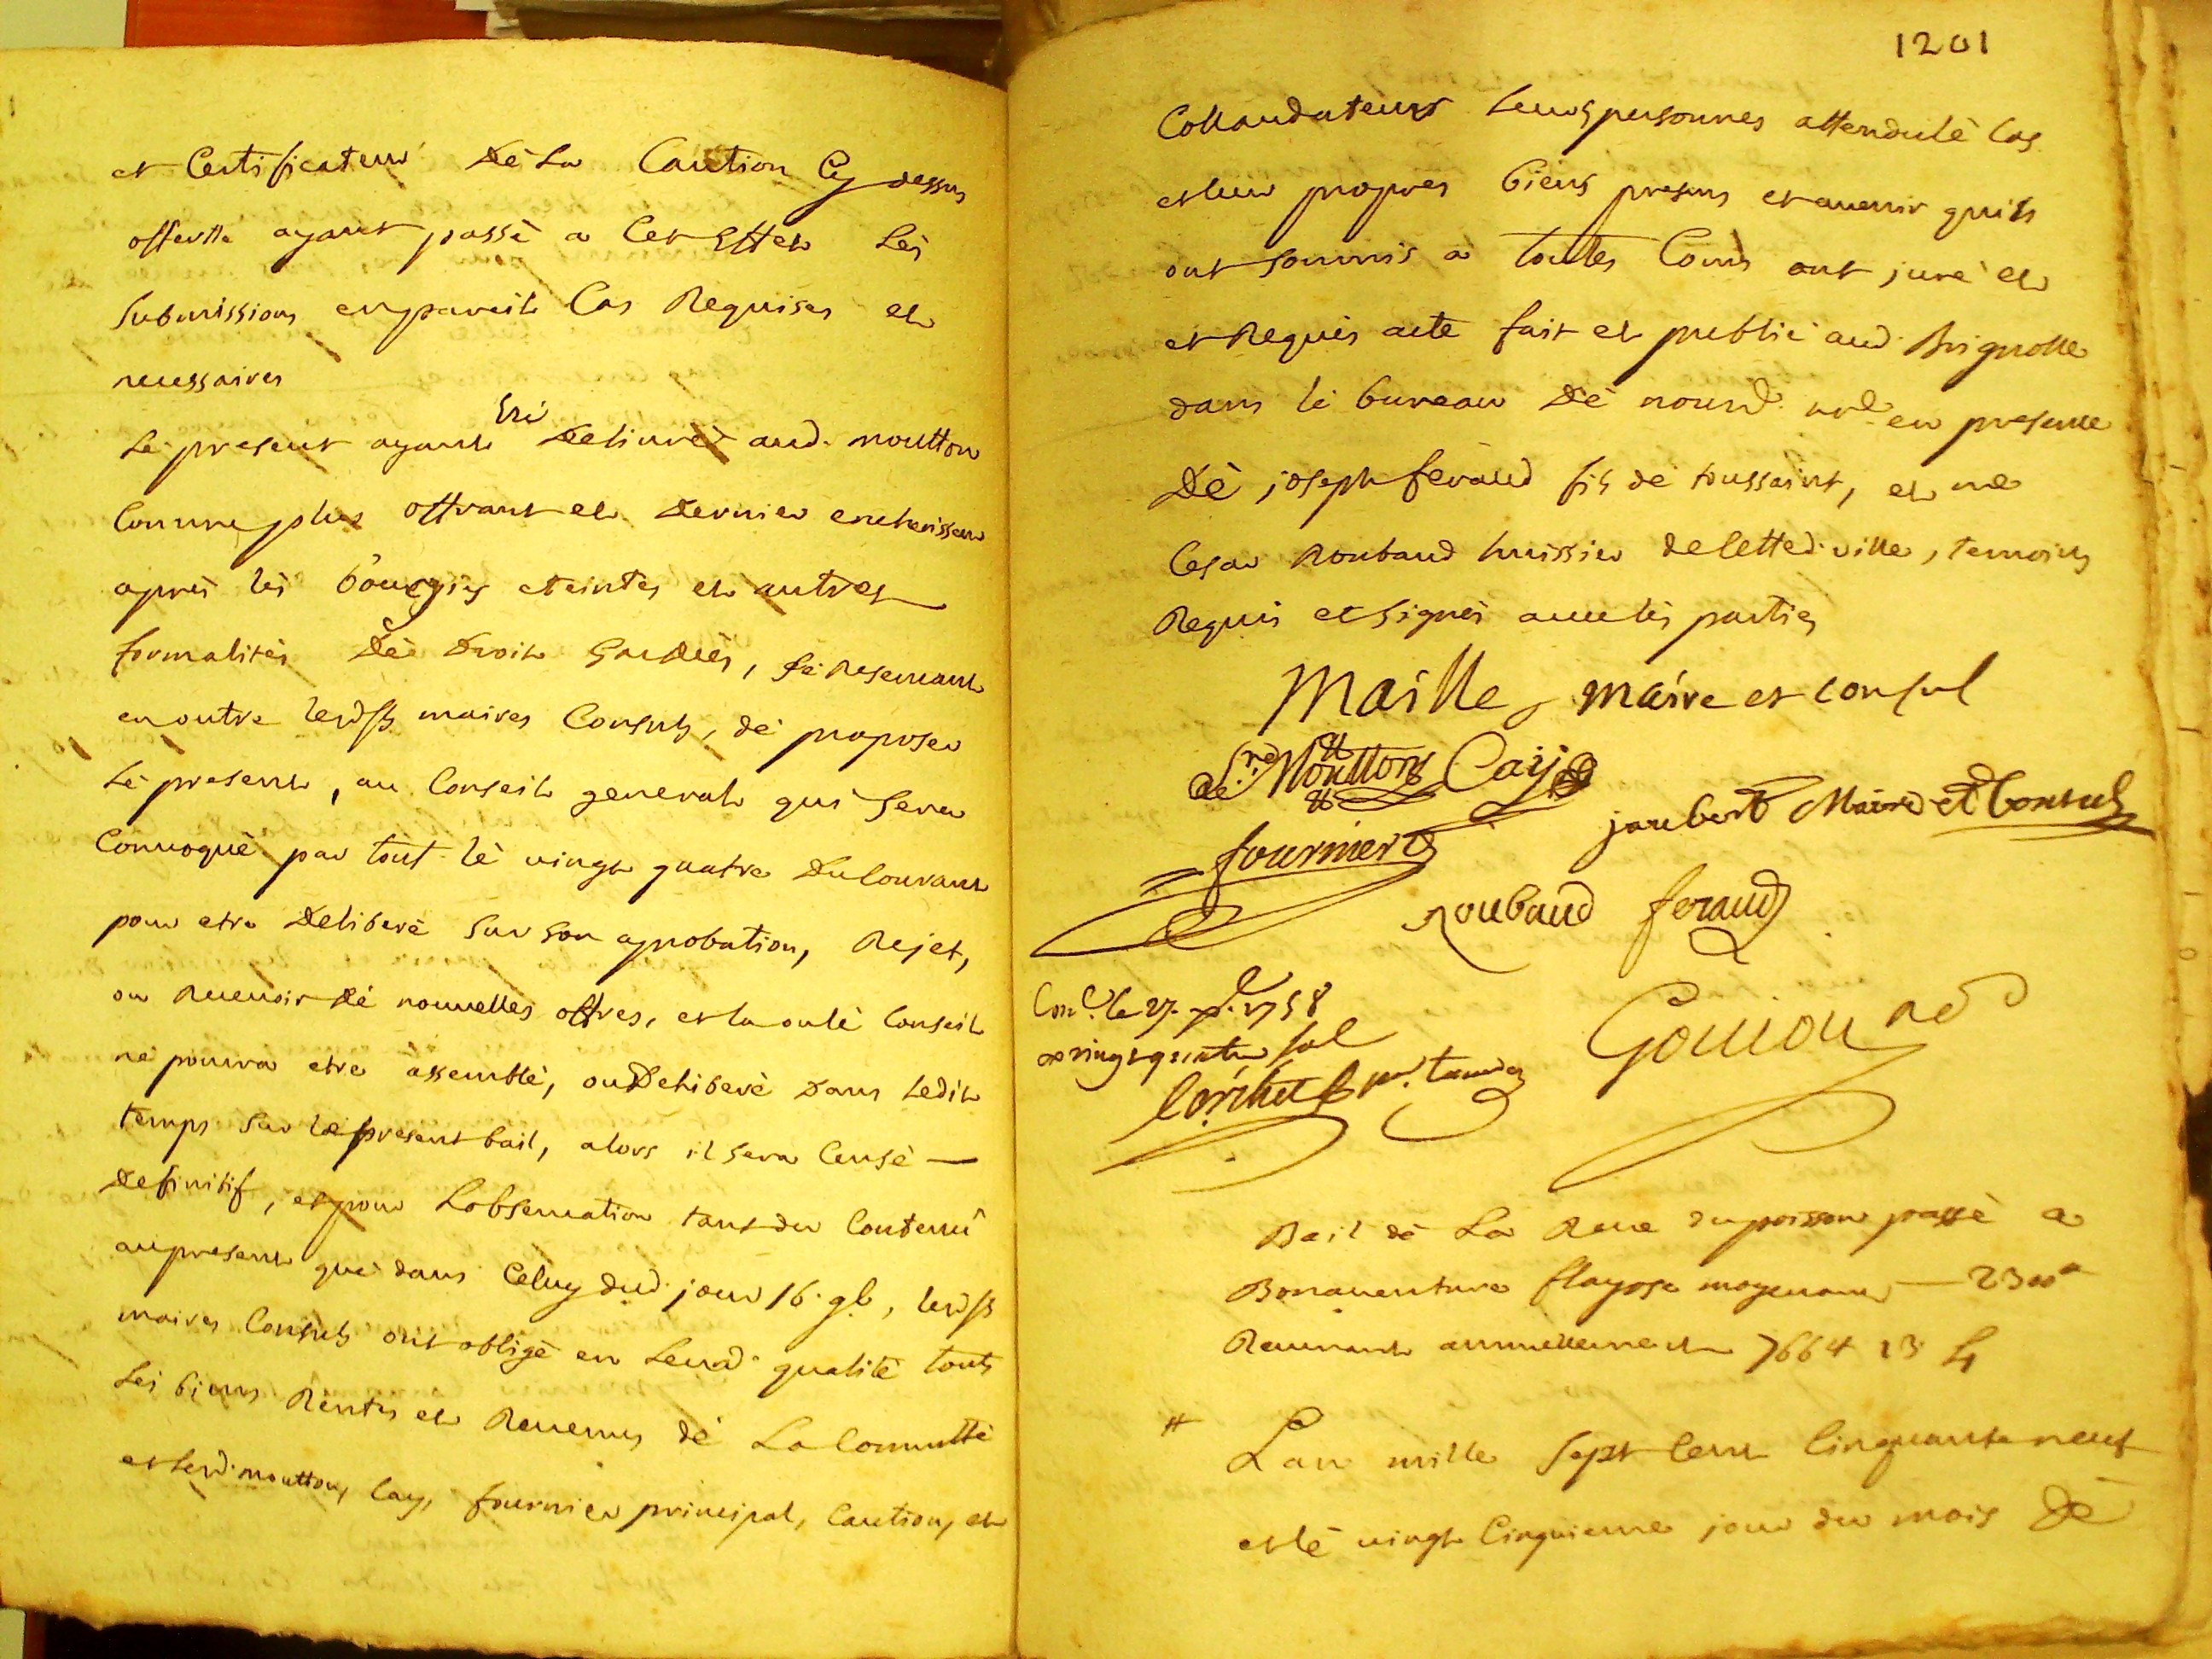 et Certificateur Dè La Caution Cy dessus
offertte ayant passè a Cet Effet Lès
Submissions en pareil Cas Requises et
necessaires
Lè present ayant Etè Delivrè aud. moutton
Comme plus offrant et Dernier encherisseur
aprés lès bougies eteintes et autres
formalitès Dè Droit Gardèes, sè Reservant
en outre lesdts maires Consuls, dè proposer
Lè present, au Conseil general qui sera
Convoquè par tout lè vingt quatre Du Courant
pour etre Deliberè sur son aprobation, Rejet,
ou Recevoir Dè nouvelles offres, et la ou lè Conseil
nè pourra etre assemblè, ou Deliberè Dans Ledit
temps sur le present bail, alors il sera Censè
Definitif, et pour Lobservation tant du Contenu
au present què dans Celuy dud. jour 16. 9b., lesdts
maires Consuls ont obligè en Leurd. qualitè touts
Lès biens Rentes et Revenus dè La Commttè
et lesd. moutton, Cay, fournier principal, Caution, et
1201
Collaudateurs Leurs personnes attendu lè Cas
et leur propres biens presens et avenir quils
ont soumis a toutes Cours ont jurè et
et Requis acte fait et publiè aud. Brignolle
dans lè bureau Dè nousd. nre. en presence
Dè joseph feraud fils dè toussaint, et me
Cesar Roubaud huissier de Cetted. ville, temoins
Requis et signès avec lès parties
Maille, maire et consul
Moutton Cay
fournier
jaubert Maire et Consul
Roubaud feraud
Gouiou nre
Bail dè La Reve du poisson passè a
Bonaventure flayose moyenant — 2300
Revenant annuellement 766 # 13 4
# Lan mille sept Cent Cinquante neuf
et lè vingt Cinquieme jour du mois Dè